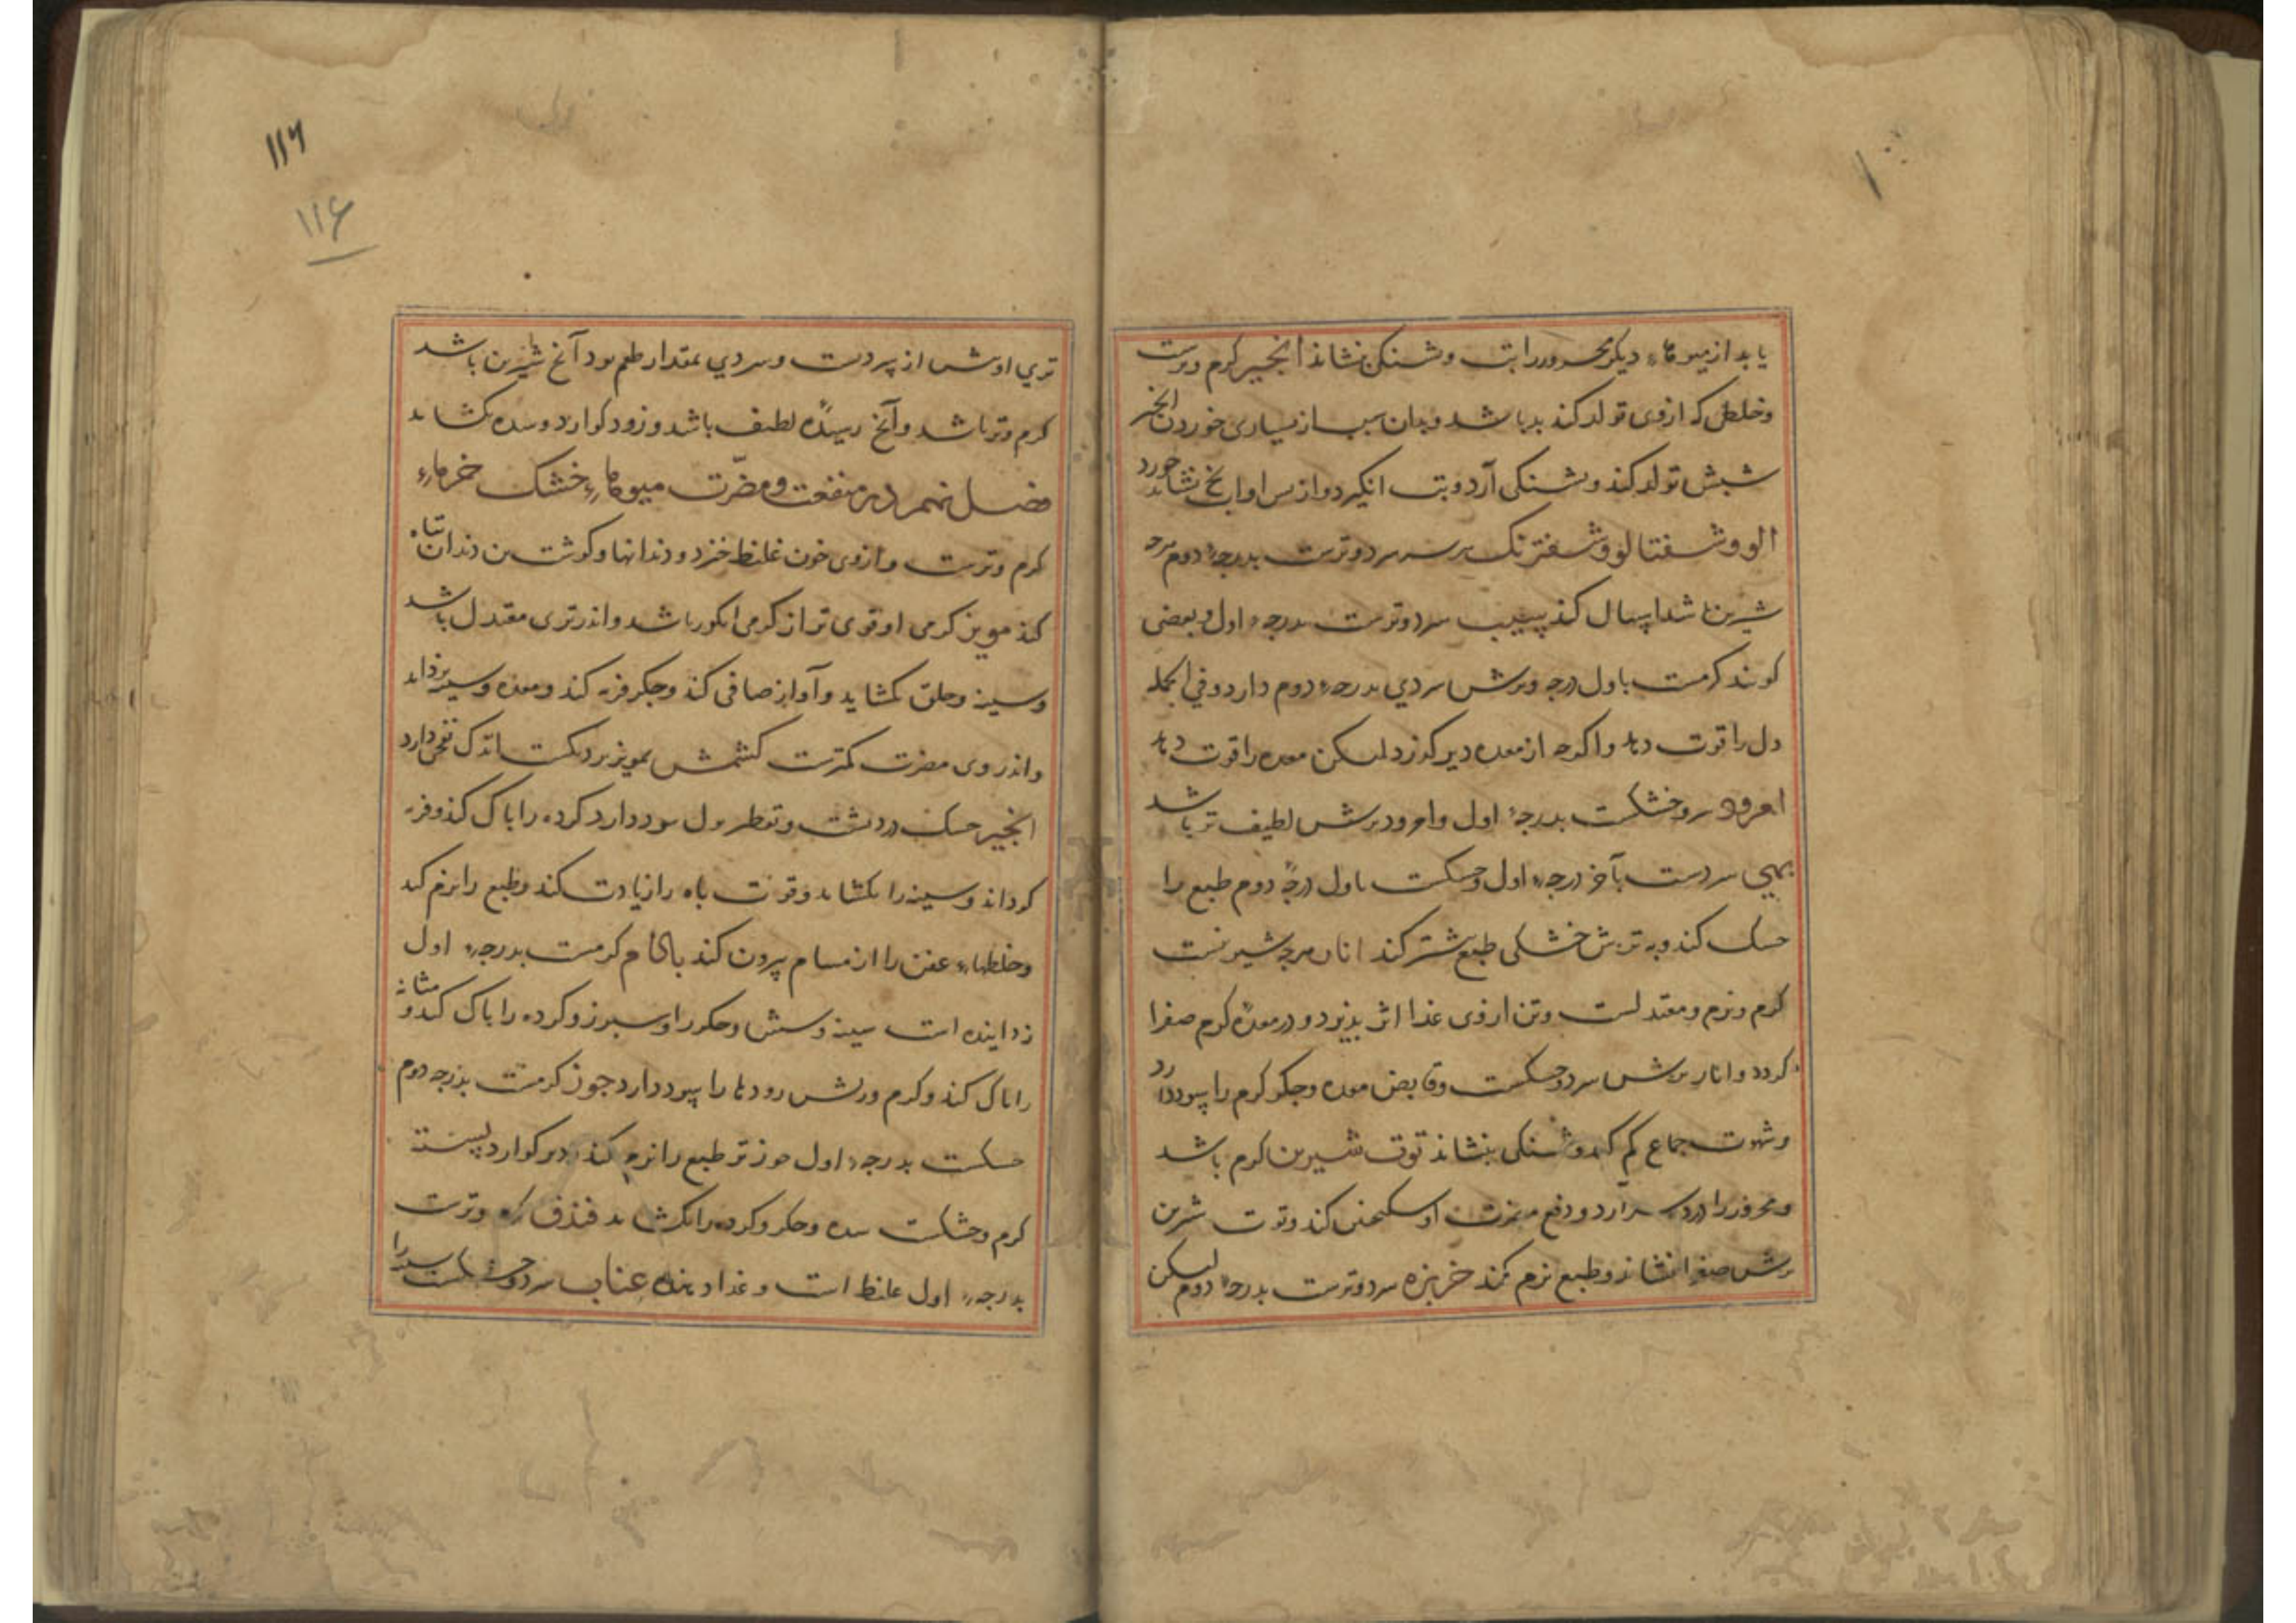 یابد از میوهاء دیکر محرور را تب و تشنکی بنشاند انجیر کرم و ترست
و خلطی که از وی تولد کند بد باشد و بدان سبب از بسیاری خوردن انجیر
شبش تولد کند و تشنکی آرد و تب انکیزد و از پس او اب یخ نشاید خورد
الو و شفتالو و شفترنک هر سه سرد و ترست بدرجهٔ دوم هرچه
شیرین باشد اسهال کند سیب سرد و ترست بدرجهٔ اول و بعضی
کویند کرمست باول درجه و ترش سردی بدرجهٔ دوم دارد و فی الجمله
دل را قوت دهد و اکرچه از معده دیر کوارد لیکن معده را قوت دهد
امرود سرد و خشکست بدرجهٔ اول و امرود ترش لطیف تر باشد
بهی سردست بآخر درجهٔ اول و خشکست باول درجهٔ دوم طبع را
خشک کند و به ترش خشکی طبع بیشتر کند انار هرچه شیرینست
کرم و نرم و معتدلست و تن از وی غذا اثر پذیرد و در معدهٔ کرم صفرا
کردد و انار ترش سرد و خشکست و قابض معده و جکر کرم را سود دارد
و شهوت جماع کم کند و تشنکی بنشاند توت شیرین کرم باشد
و محرور را درد سر آرد و دفع مضرت او سکنجبین کند و توت شیرین
ترش صفرا بنشاند و طبع نرم کند خربزه سرد و ترست بدرجهٔ دوم لیکن
۱۱۶
۱۱۶
تری اوش از پر دست و سردی بمقدار طعم بود آنچ شیرین باشد
کرم و تر باشد و آنچ رسیده لطیف باشد و زود کوارد و سده بکشاید
فصل نهم در منفعت و مضرّت میوهاء خشک خرماء
کرم و ترست و از وی خون غلیظ خیزد و دندانها و کوشت بن دندان تباه
کند مویز کرمی او قوی تر از کرمی انکور باشد و اندر تری معتدل باشد
و سینه و حلق بکشاید و آواز صافی کند و جکر فربه کند و معده و سپرز بزداید
و اندر وی مضرت کمترست کشمش بمویز نزدیکست اندک نفخی دارد
انجیر خشک درد پشت و تقطیر بول سود دارد کرده را پاک کند و فربه
کرداند و سینه را بکشاید و قوت باه را زیادت کند و طبع را نرم کند
و خلطهاء عفن را از مسام بیرون کند بادام کرمست بدرجهٔ اول
زداینده است سینه و شش و جکر را و سپرز و کرده را پاک کند و مثانه
را پاک کند و کرم و ریش رودها را سود دارد جوز کرمست بدرجه دوم
خشکست بدرجهٔ اول جوز تر طبع را نرم کند و دیر کوارد پسته
کرم و خشکست سده و جکر و کرده را بکشاید فندق کرم و ترست
بدرجهٔ اول غلیظ است و غذا دهنده عناب سرد و خشکست سینه را